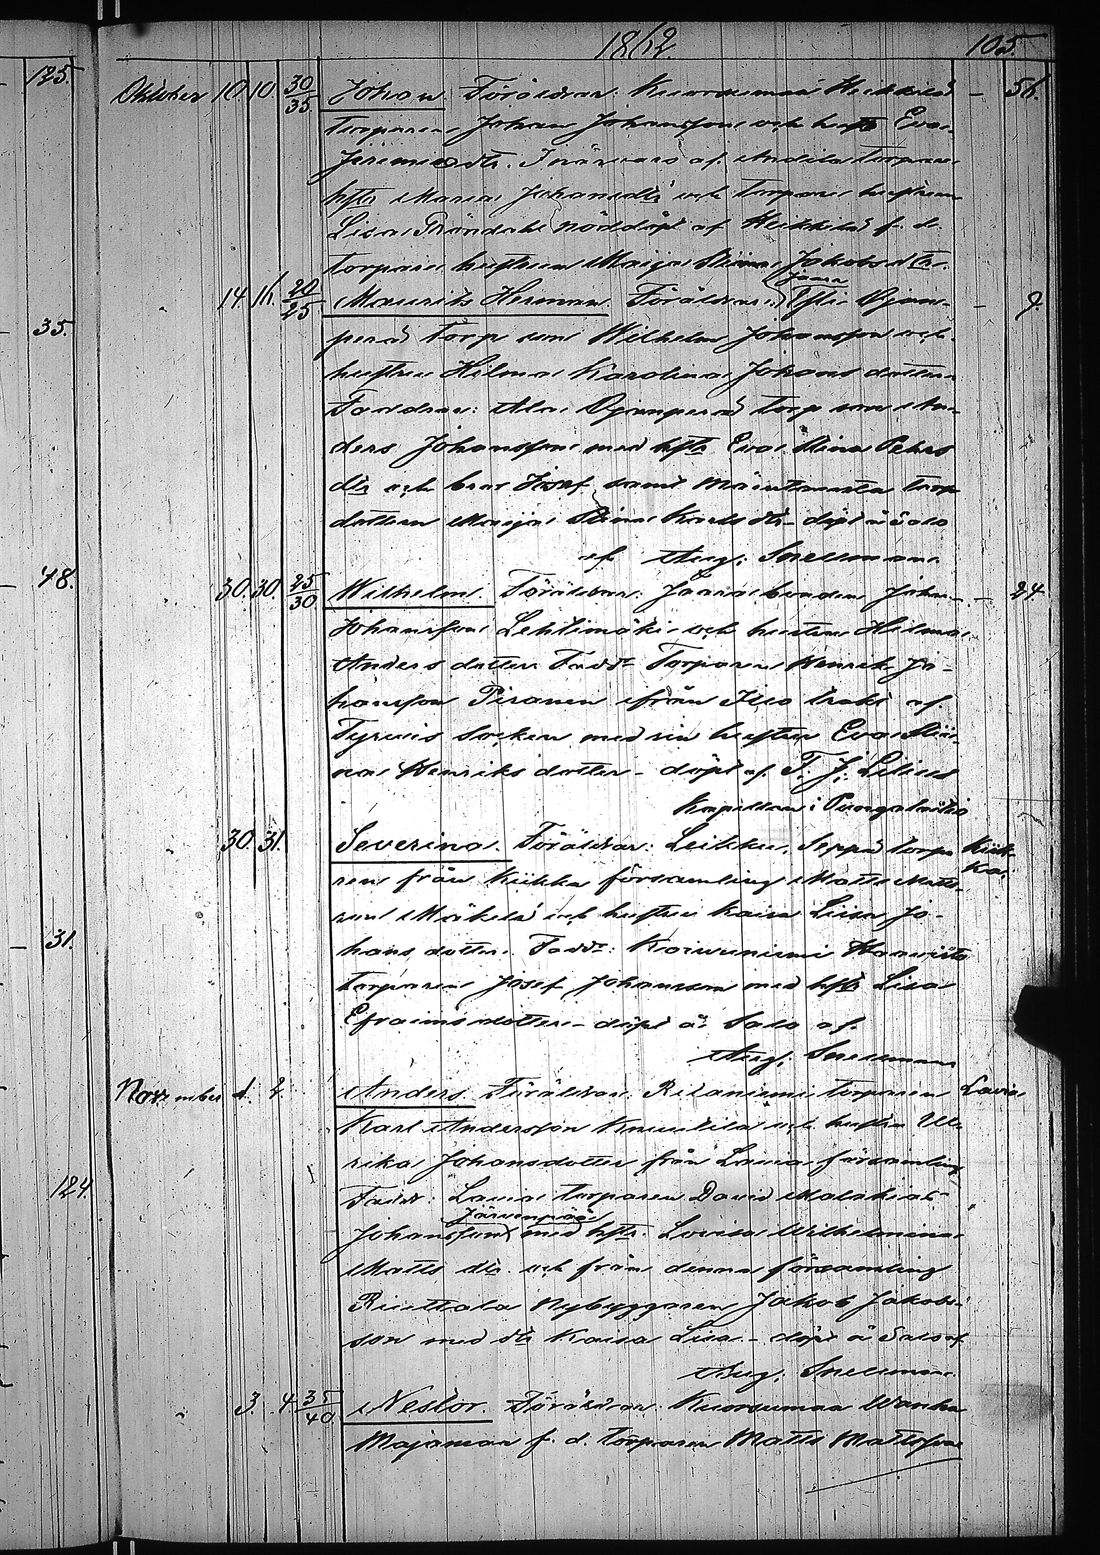 1862. 105.
125.
Oktober 10. 10. 30/35 Johan Föräldrar: Heikkilä – 56.
torparen Johan Johansson och hustr Eva
Jeremiedtr. af torpare
hstr Maria Johansdtr och torpare hustrun
Lisa Gröndahl nöddöpt af Heikkilä f. d.
torpare hustrun Maija Stina Jakobsdtr.
14. 16. 20/25 Maurits Herman Föräldrar: Ojan- – 9.
perä torp son Wilhelm Johansson och
35.
hustru Hilma Karolina Johans dotter
Faddrar: Ala Ojanperä torp son An-
ders Johansson med hstr Eva Stina Pehrs
dtr och bror Josef samt torp
dottern Maija Stina Karlsdtr – döpt å Salo
af Aug. Snellman.
48.
30. 30. 25/30 Wilhelm Föräldrar: bonden Johan – 24.
Johansson Lehtimäki och hustru Hilma
Anders dotter Fadd: Torparen Henrik Jo-
hansson Piranen ifrån af
Tyrvis socken med sin hustru Eva Sti-
na Henriks dotter – döpt af T. J. Lilius
Kapellan i Pungalaitio
30. 31. Severina. Föräldrar: Leikku, Seppä torpa- Kiik-
ka.
ren från Kiikka församling Matts Matts-
son Mäkelä och hustru Kaisa Lisa Jo-
31.
hans dotter. Fadd: Koivuniemi
torparen Josef Johansson med hstr Lisa
Efraims dotter – döpt å Salo af
Aug. Snellman
November d. 2 Anders. Föräldrar: Ritaniemi torparen Lavia
Karl Andersson och hustru Ul-
rika Johansdotter från Lavia församling
124.
Fadd: Lavia torparen David Malakias
Järvenpää
Johansson med hstr. Lovisa Wilhelmina
Matts dtr. och från denna församling
Riuttala Nybyggaren Jakob Jakobs-
son med dtr Kaisa Lisa – döpt å Salo af
Aug. Snellman.
3. 4 35/40 Nestor. Föräldrar: Wanha
Majamaa f. d. torparen Matts Mattsson